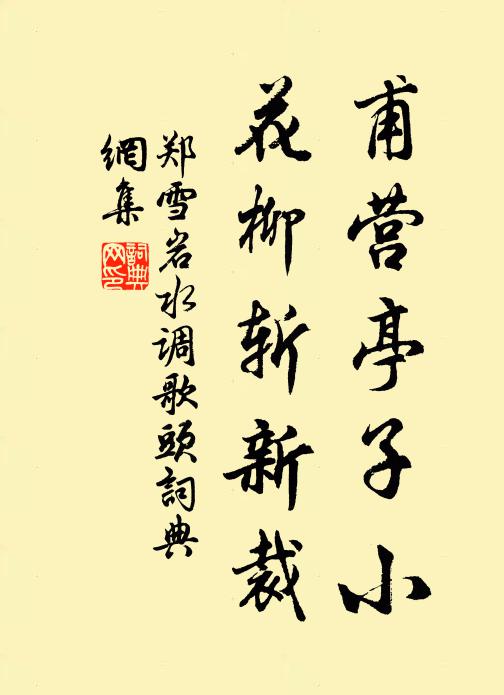 甫营亭子小
花柳斩新裁
郑雪岩水调歌头詞典
網集
詞典网印